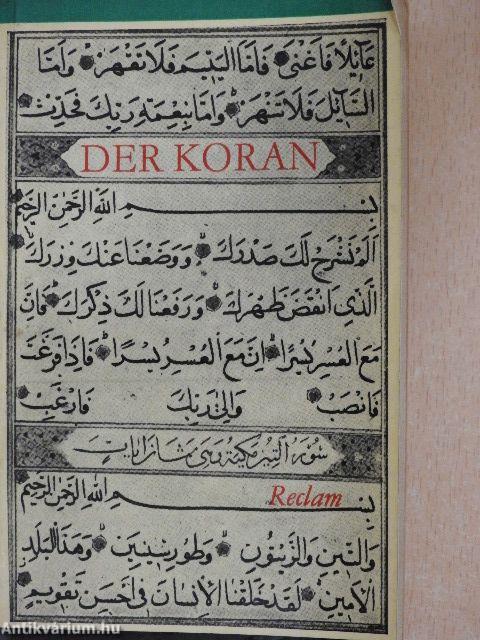 عَآئِلًا فَاَغْنٰى فَاَمَّا الْيَتِيمَ فَلَا تَقْهَرْ وَاَمَّا
السَّآئِلَ فَلَا تَنْهَرْ وَاَمَّا بِنِعْمَةِ رَبِّكَ فَحَدِّثْ
DER KORAN
بِسْمِ اللّٰهِ الرَّحْمٰنِ الرَّحِيمِ
اَلَمْ نَشْرَحْ لَكَ صَدْرَكَ وَوَضَعْنَا عَنْكَ وِزْرَكَ
الَّذِي اَنْقَضَ ظَهْرَكَ وَرَفَعْنَا لَكَ ذِكْرَكَ فَاِنَّ
مَعَ الْعُسْرِ يُسْرًا اِنَّ مَعَ الْعُسْرِ يُسْرًا فَاِذَا فَرَغْتَ
فَانْصَبْ وَاِلٰى رَبِّكَ فَارْغَبْ
سورة التين مكية وهي ثمان ايات
بِسْمِ اللّٰهِ الرَّحْمٰنِ الرَّحِيمِ
Reclam
وَالتِّينِ وَالزَّيْتُونِ وَطُورِ سِينِينَ وَهٰذَا الْبَلَدِ
الْاَمِينِ لَقَدْ خَلَقْنَا الْاِنْسَانَ فِي اَحْسَنِ تَقْوِيمٍ
Antikvárium.hu